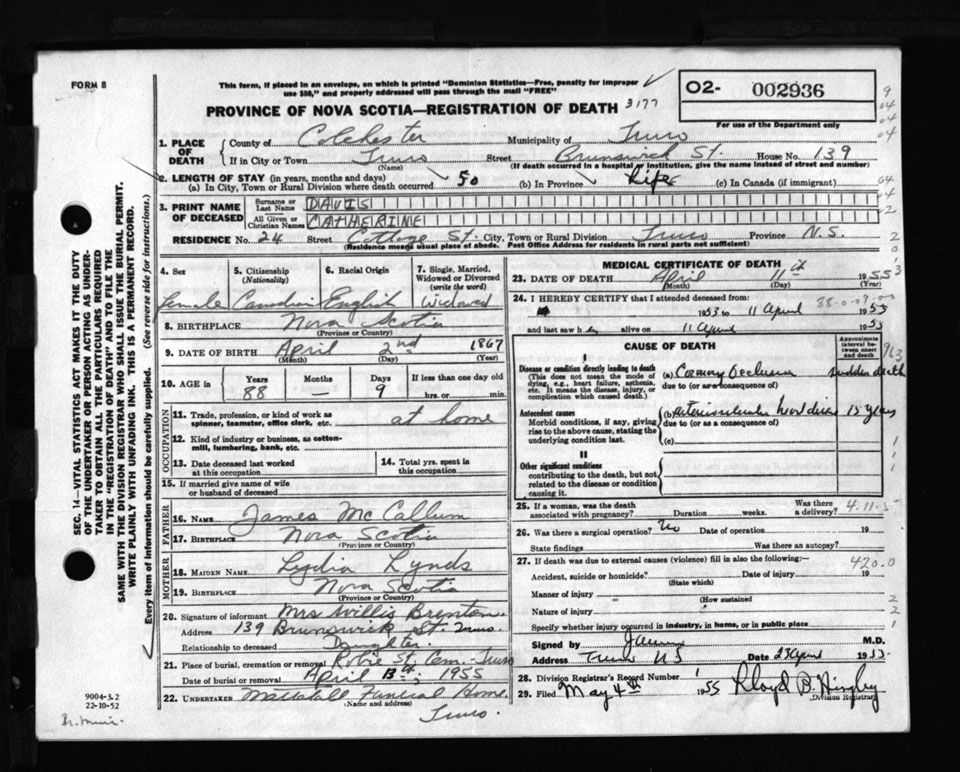 FORM 8
This form, if placed in an envelope, on which is printed "Dominion Statistics—Free, penalty for improper
use $50," and properly addressed will pass through the mail "FREE"
O2- 002936
For use of the Department only
PROVINCE OF NOVA SCOTIA—REGISTRATION OF DEATH 3177
1. PLACE OF DEATH
County of Colchester Municipality of Truro
If in City or Town Truro Street Brunswick St. House No. 139
(Name) (If death occurred in a hospital or institution, give the name instead of street and number)
2. LENGTH OF STAY (in years, months and days)
(a) In City, Town or Rural Division where death occurred 50 (b) In Province Life (c) In Canada (if immigrant)
3. PRINT NAME OF DECEASED
Surname or Last Name DAVIS
All Given or Christian Names CATHERINE
RESIDENCE No. 24 Street Cottage St. City, Town or Rural Division Truro Province N.S.
(Residence means usual place of abode. Post Office Address for residents in rural parts not sufficient)
4. Sex
Female
5. Citizenship
(Nationality)
Canadian
6. Racial Origin
English
7. Single, Married, Widowed or Divorced
(write the word)
Widowed
8. BIRTHPLACE Nova Scotia
(Province or Country)
9. DATE OF BIRTH April 2nd 1867
(Month) (Day) (Year)
10. AGE in Years 88 Months — Days 9 If less than one day old
hrs. or min.
OCCUPATION
11. Trade, profession, or kind of work as
spinner, teamster, office clerk, etc. at home
12. Kind of industry or business, as cotton-
mill, lumbering, bank, etc.
13. Date deceased last worked
at this occupation
14. Total yrs. spent in
this occupation
15. If married give name of wife
or husband of deceased
FATHER
16. NAME James McCallum
17. BIRTHPLACE Nova Scotia
(Province or Country)
MOTHER
18. MAIDEN NAME Lydia Lynds
19. BIRTHPLACE Nova Scotia
(Province or Country)
20. Signature of informant Mrs Willis Brenton
Address 139 Brunswick St. Truro.
Relationship to deceased Daughter.
21. Place of burial, cremation or removal Robie St. Cem. Truro
Date of burial or removal April 13th, 1955
22. UNDERTAKER Mattatall Funeral Home.
(Name and address)
Truro.
MEDICAL CERTIFICATE OF DEATH
23. DATE OF DEATH April 11th 1955
(Month) (Day) (Year)
24. I HEREBY CERTIFY that I attended deceased from:
1953 to 11 April 1953
and last saw h alive on 11 April 1953
CAUSE OF DEATH
Approximate interval between onset and death
I
Disease or condition directly leading to death
(This does not mean the mode of
dying, e.g., heart failure, asthenia,
etc. It means the disease, injury, or
complication which caused death.)
(a) Coronary Occlusion sudden death
due to (or as a consequence of)
Antecedent causes
Morbid conditions, if any, giving
rise to the above cause, stating the
underlying condition last.
(b) heart disease 15 years
due to (or as a consequence of)
(c)
II
Other significant conditions
contributing to the death, but not
related to the disease or condition
causing it.
25. If a woman, was the death
associated with pregnancy? Duration weeks. Was there
a delivery? 4-11-5
26. Was there a surgical operation? No Date of operation 19
State findings Was there an autopsy?
27. If death was due to external causes (violence) fill in also the following:—
420.0
Accident, suicide or homicide? Date of injury 19
(State which)
Manner of injury
(How sustained
Nature of injury
Specify whether injury occurred in industry, in home, or in public place
Signed by M.D.
Address Truro NS Date 23 April 19
28. Division Registrar's Record Number
29. Filed May 4th 1955 Lloyd B.
Division Registrar
SEC. 14—VITAL STATISTICS ACT MAKES IT THE DUTY
OF THE UNDERTAKER OR PERSON ACTING AS UNDER-
TAKER TO OBTAIN ALL THE PARTICULARS REQUIRED
IN THE "REGISTRATION OF DEATH" AND TO FILE THE
SAME WITH THE DIVISION REGISTRAR WHO SHALL ISSUE THE BURIAL PERMIT.
WRITE PLAINLY WITH UNFADING INK. THIS IS A PERMANENT RECORD.
Every item of information should be carefully supplied. (See reverse side for instructions.)
9004-3.2
22-10-52